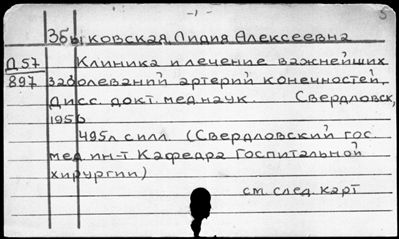 -1- 5
Збыковская, Лидия Алексеевна
Д57 Клиника и лечение важнейших
897 заболеваний артерий конечностей.
Дисс. докт. мед. наук. Свердловск,
1956
495л силл. (Свердловский гос
мед. ин-т. Кафедра госпитальной
хирургии)
см. след. карт